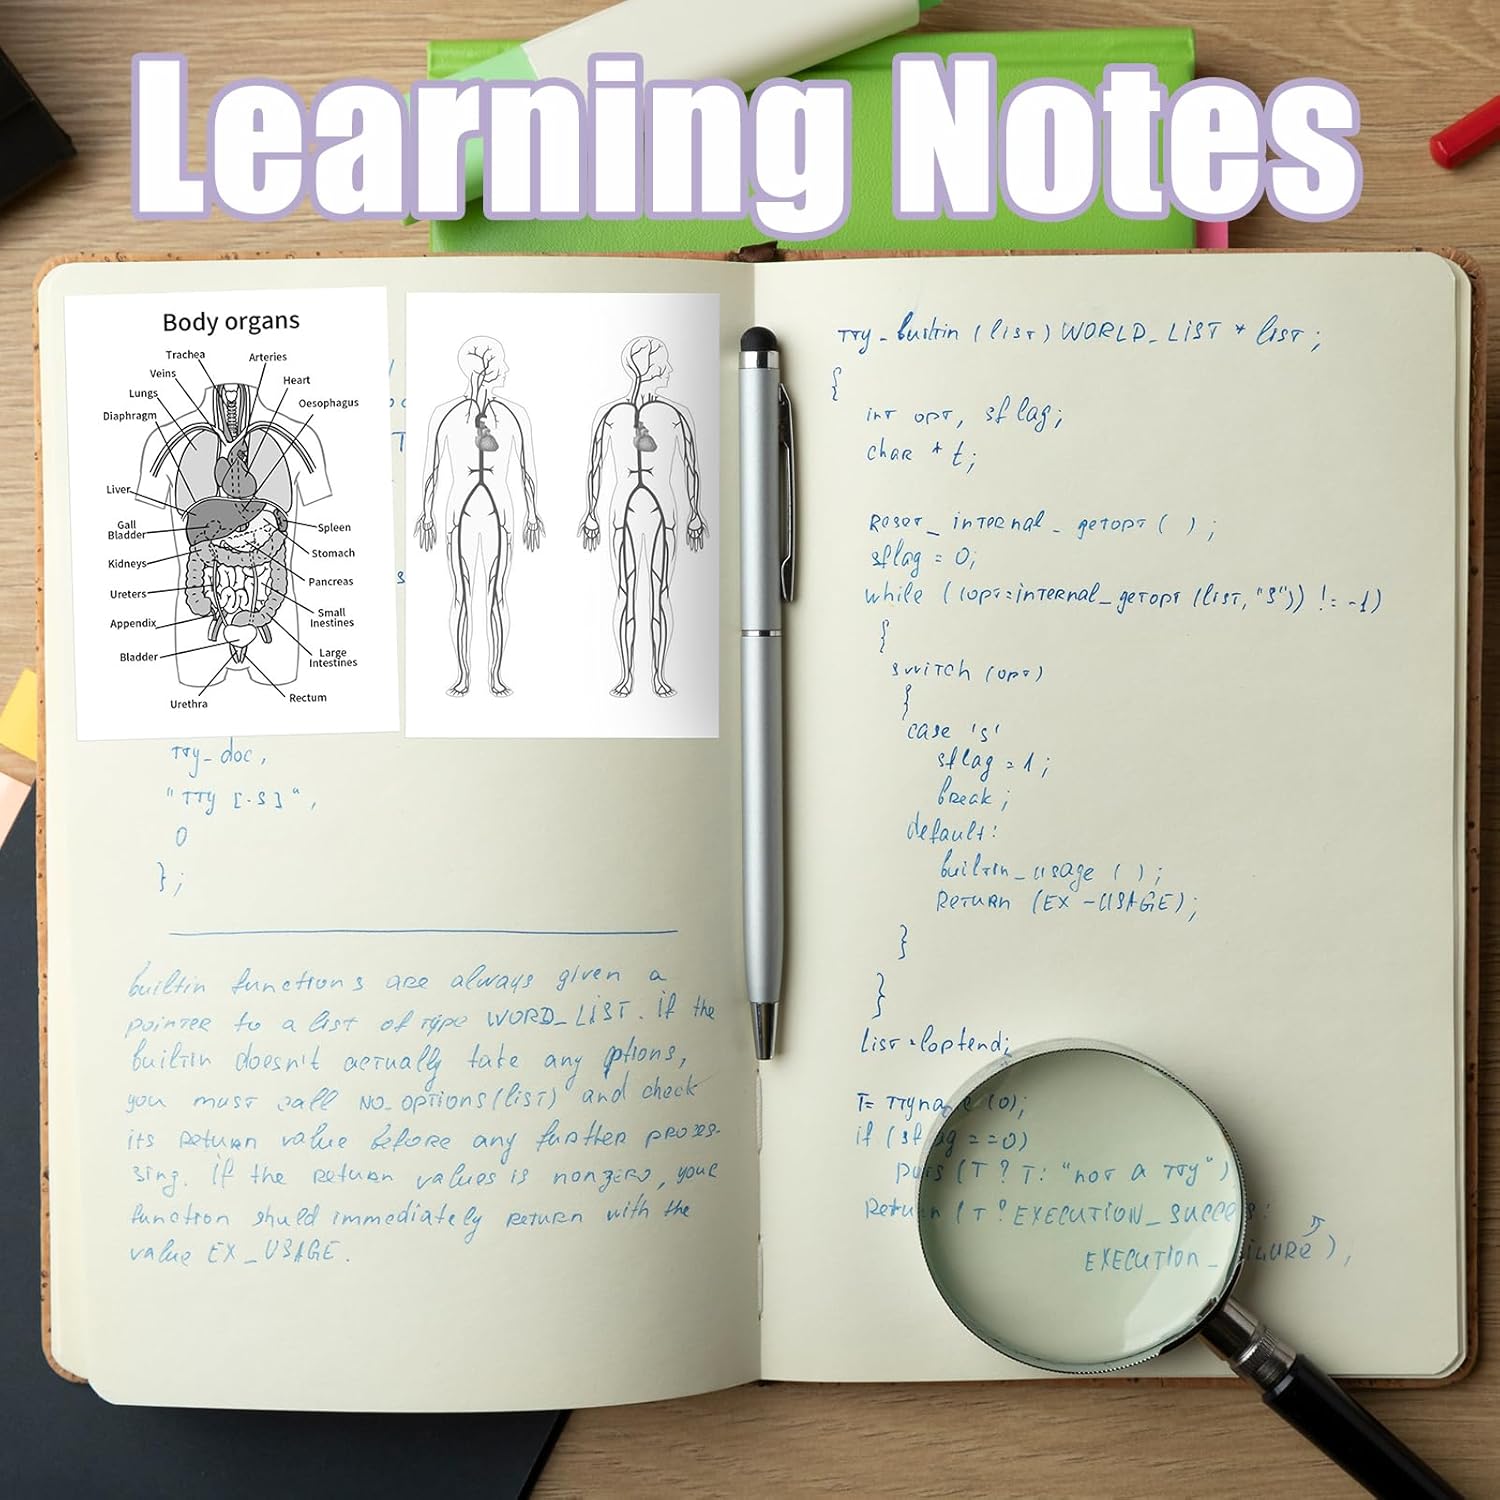 Learning Notes
Body organs
Trachea
Arteries
Veins
Heart
Lungs
Oesophagus
Diaphragm
Liver
Gall
Bladder
Spleen
Kidneys
Stomach
Ureters
Pancreas
Appendix
Small
Inestines
Bladder
Large
Intestines
Urethra
Rectum
tty_doc,
"TTY [-S]",
0
};
builtin functions are always given a
pointer to a list of type WORD_LIST. if the
builtin doesn't actually take any options,
you must call NO_OPTIONS(list) and check
its return value before any further proces-
sing. if the return values is nonzero, your
function shuld immediately return with the
value EX_USAGE.
tty_builtin (list) WORLD_LIST * list;
{
int opt, sflag;
char * t;
Reset_internal_getopt ( );
sflag = 0;
while ((opt=internal_getopt (list, "S")) != -1)
{
switch (opt)
{
case 's'
sflag = 1;
break;
default:
builtin_usage ( );
Return (EX-USAGE);
}
}
list=loptend;
T= ttyname (0);
if (sflag ==0)
puts (T ? T: "not a tty")
Return (T ? EXECUTION_SUCCES:
EXECUTION_FAILURE),